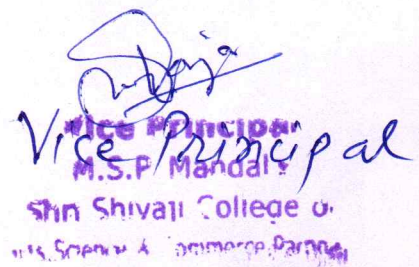 Vice Principal
Vice Principal
M.S.P. Mandal's
Shri Shivaji College of
Arts, Science & Commerce, Parbhani